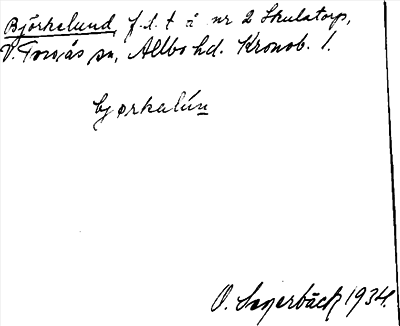 Björkelund, f.d. t å nr 2 Skulatorp,
V. Torsås sn, Allbo hd. Kronob. l.
bjørkalún
O. Segerbäck 1934.